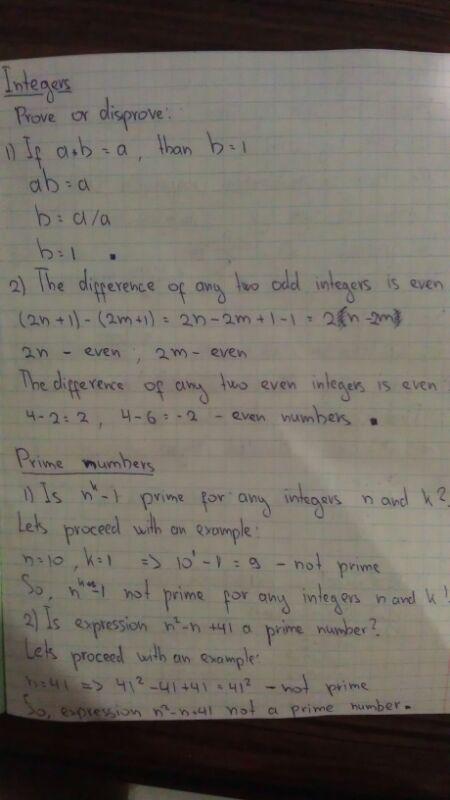 Integers
Prove or disprove:
1) If a*b = a, than b=1
ab = a
b = a/a
b=1 .
2) The difference of any two odd integers is even
(2n+1)-(2m+1) = 2n-2m+1-1 = 2n-2m
2n - even ; 2m - even
The difference of any two even integers is even:
4-2=2, 4-6=-2 - even numbers .
Prime numbers
1) Is n^k-1 prime for any integers n and k?
Lets proceed with an example:
n=10, k=1 => 10^1-1=9 - not prime
So, n^k-1 not prime for any integers n and k!
2) Is expression n²-n+41 a prime number?
Lets proceed with an example:
n=41 => 41²-41+41=41² - not prime
So, expression n²-n+41 not a prime number.